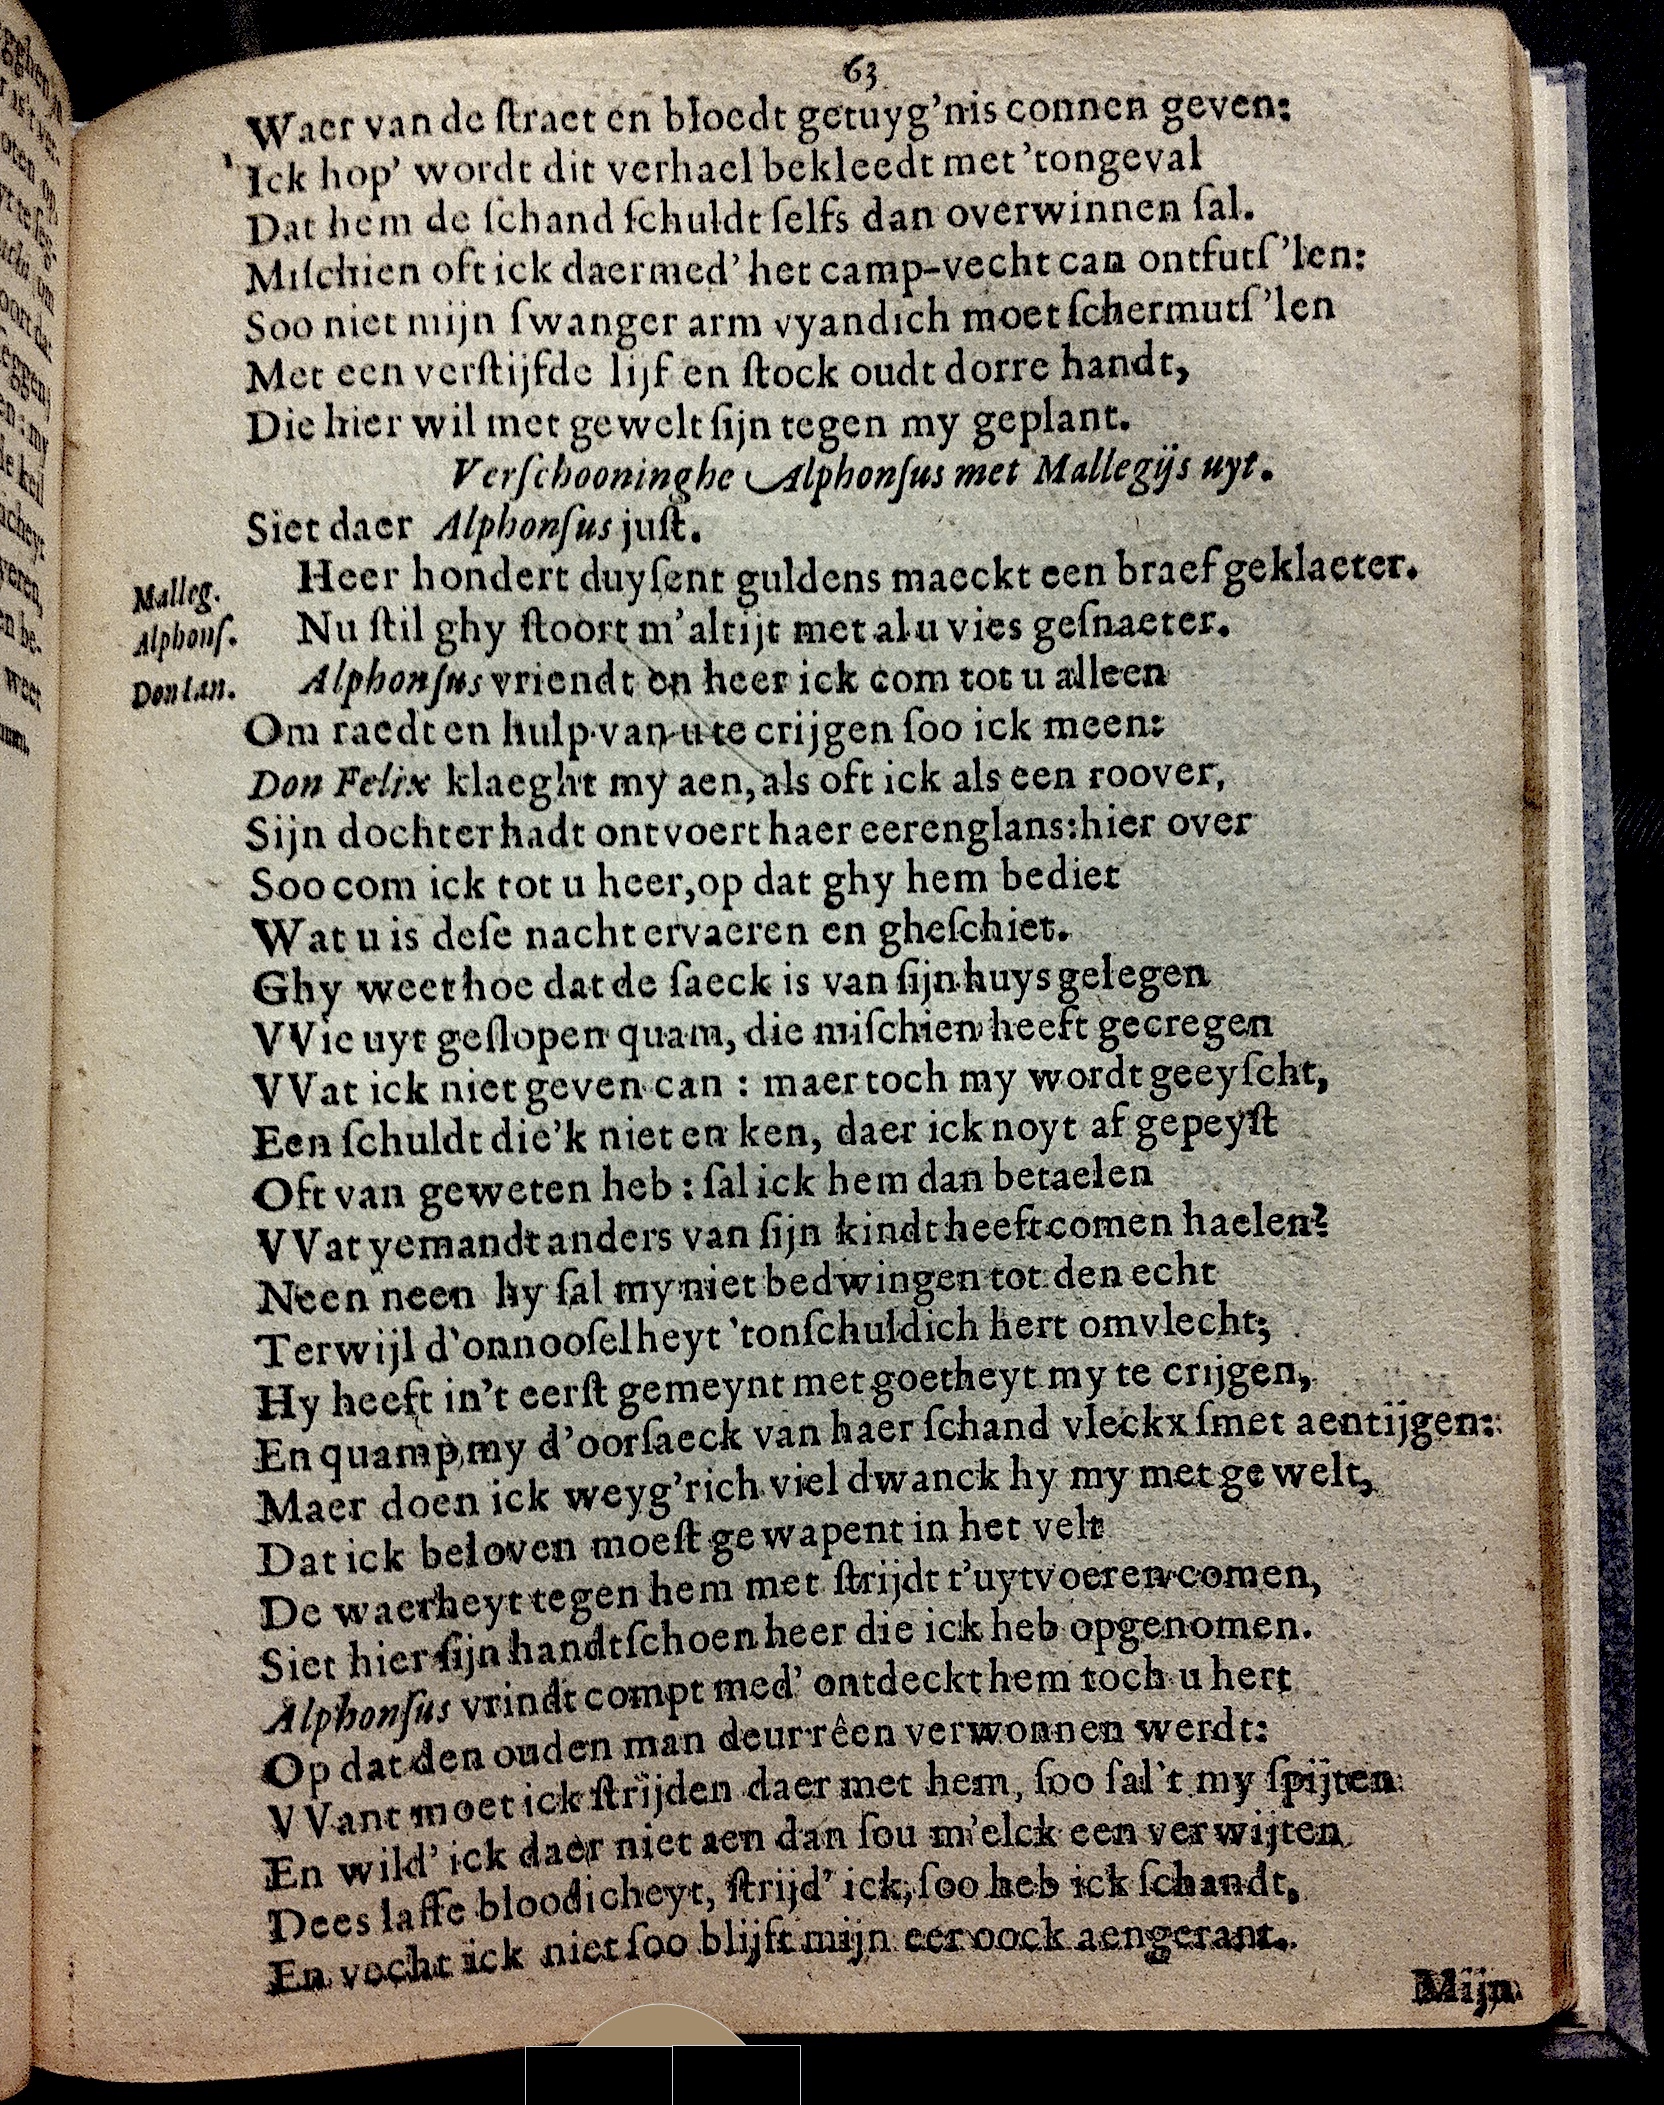 63
Waer van de ſtraet en bloedt getuyg'nis connen geven:
Ick hop' wordt dit verhael bekleedt met 'tongeval
Dat hem de ſchand ſchuldt ſelfs dan overwinnen ſal.
Miſchien oft ick daermed' het camp-vecht can ontfutſ'len:
Soo niet mijn ſwanger arm vyandich moet ſchermutſ'len
Met een verſtijfde lijf en ſtock oudt dorre handt,
Die hier wil met gewelt ſijn tegen my geplant.
Verſchooninghe Alphonſus met Mallegijs uyt.
Siet daer Alphonſus juſt.
Malleg. Heer hondert duyſent guldens maeckt een braef geklaeter.
Alphonſ. Nu ſtil ghy ſtoort m'altijt met al u vies geſnaeter.
Don Ian. Alphonſus vriendt en heer ick com tot u alleen
Om raedt en hulp van u te crijgen ſoo ick meen:
Don Felix klaeght my aen, als oft ick als een roover,
Sijn dochter hadt ontvoert haer eerenglans: hier over
Soo com ick tot u heer, op dat ghy hem bediet
Wat u is deſe nacht ervaeren en gheſchiet.
Ghy weet hoe dat de ſaeck is van ſijn huys gelegen
VVie uyt geſlopen quam, die miſchien heeft gecregen
VVat ick niet geven can : maer toch my wordt geeyſcht,
Een ſchuldt die'k niet en ken, daer ick noyt af gepeyſt
Oft van geweten heb : ſal ick hem dan betaelen
VVat yemandt anders van ſijn kindt heeft comen haelen?
Neen neen hy ſal my niet bedwingen tot den echt
Terwijl d'onnooſelheyt 'tonſchuldich hert omvlecht;
Hy heeft in't eerſt gemeynt met goetheyt my te crijgen,
En quamp, my d'oorſaeck van haer ſchand vleckx ſmet aentijgen:
Maer doen ick weyg'rich viel dwanck hy my met gewelt,
Dat ick beloven moeſt gewapent in het velt
De waerheyt tegen hem met ſtrijdt t'uytvoeren comen,
Siet hier ſijn handtſchoen heer die ick heb opgenomen.
Alphonſus vrindt compt med' ontdeckt hem toch u hert
Op dat den ouden man deur rêen verwonnen werdt:
VVant moet ick ſtrijden daer met hem, ſoo ſal't my ſpijten
En wild' ick daer niet aen dan ſou m'elck een verwijten
Dees laffe bloodicheyt, ſtrijd' ick, ſoo heb ick ſchandt,
En vecht ick niet ſoo blijft mijn eer oock aengerant.
Mijn